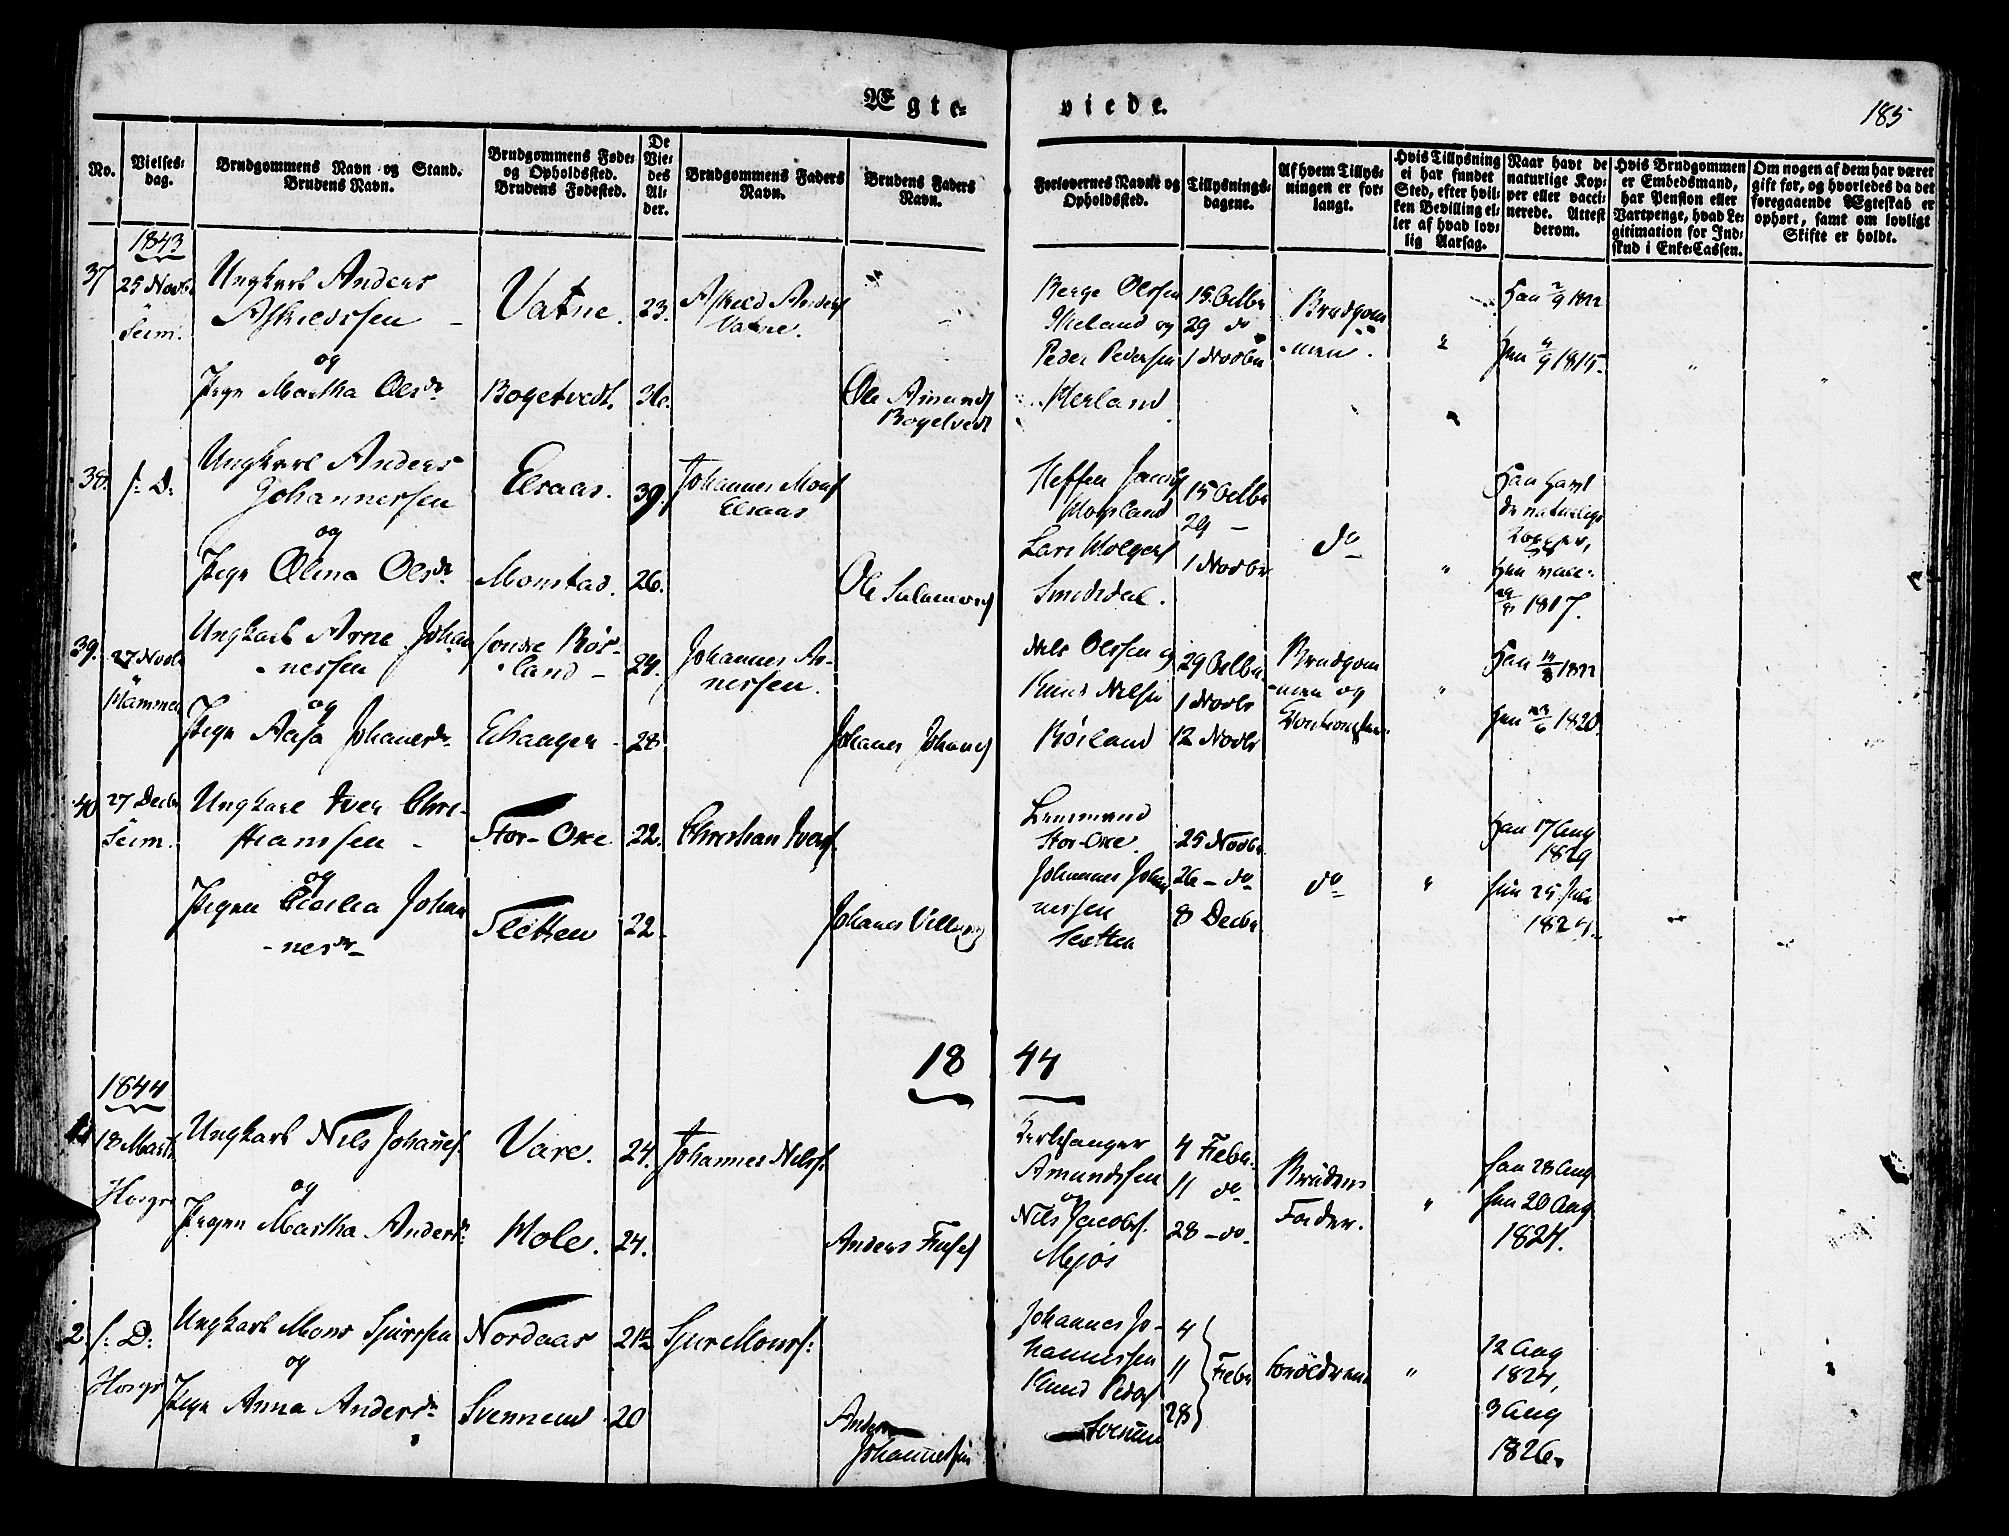 Ægte-
viede.
185
No.
Vielses-
dag.
Brudgommens Navn og Stand.
Brudens Navn.
Brudgommens Føde-
og Opholdssted.
Brudens Fødested.
De
Vie-
des
Al-
der.
Brudgommens Faders
Navn.
Brudens Faders
Navn.
Forlovernes Navne og
Opholdssted.
Tillysnings-
dagene.
Af hvem Tillys-
ningen er for-
langt.
Hvis Tillysning
ei har fundet
Sted, efter hvil-
ken Bevilling el-
ler af hvad lov-
lig Aarsag.
Naar havt de
naturlige Kop-
per eller vacci-
nerede. Attest
derom.
Hvis Brudgommen
er Embedsmand,
har Pension eller
Vartpenge, hvad Le-
gitimation for Ind-
skud i Enke-Cassen.
Om nogen af dem har været
gift før, og hvorledes da det
foregaaende Ægteskab er
ophørt, samt om lovligt
Skifte er holdt.
1843
37
25 Novbr
Seim.
Ungkarl Anders
Askildssen
og
Pige Martha Olsdr
Vatne.
Bogetvedt.
23.
Askild Anders
Vatne.
Ole Amunds
Bogetvedt
Berge Olssen
og
Peder Pedersen
15 Octbr
29 do
1 Novbr
Brudgom
-men.
Han 2/9 1822
Hun 1815.
38.
s: D:
Ungkarl Anders
Johannessen
og
Pige Olina Olsdr
Elsaas.
Monstad.
39.
26.
Johannes Mons
Elsaas
Ole Salamons
Steffen Jacobs
Lars Holgers
Smidsdal.
15 Octbr
29 -
1 Novbr
do
Han havt
de naturlige
Kopper,
Hun vacc:
1817.
39.
27 Novbr
Hammer
Ungkarl Arne Johan
-nessen
og
Pige Aasa Johanesdr
-land
Echanger
24.
28
Johannes Ar-
nessen.
Johanes Johanes
Nils Olssen og
Knud Nilsen
29 Octbr.
1 Novbr
12 Novbr
Brudgom
-men og
Han 14/8 1822
Hun 1820.
40
27 Decbr
Seim.
Ungkarl Iver Chri-
stianssen
og
Pigen Cecilia Johan
-nesdr
Stor-Oxe
Sletten
22.
22.
Christian Ivers.
Johanes Villums
Lensmand
Stor-Oxe.
Johannes Johan
nessen
Sletten
25 Novbr.
26 - do
8 Decbr
do
Han 17 Aug
1829
Hun 25 Juli
1824.
18 44
1844
1.
18 Marts
Hosge
Ungkarl Nils Johanes.
og
Pigen Martha Andersdr
Vare.
Mole.
24.
24.
Johannes Nilss.
Anders
Amundssen
og
Nils Jacobs.
Mjøs
4 Febr.
11 do
28 - do
Brudens
Fader.
Han 28 Aug
Hun 20 Aug
1824.
2.
s: D:
Hosge
Ungkarl Mons Sjurssen
og
Pige Anna Andersdr
Nordaas
20
Sjur Monss:
Anders
Johannessen
Johannes Jo-
hannessen
Knud Peders
4
11
28
Febr
Forældrene
12 Aug
1824,
3 Aug
1826.